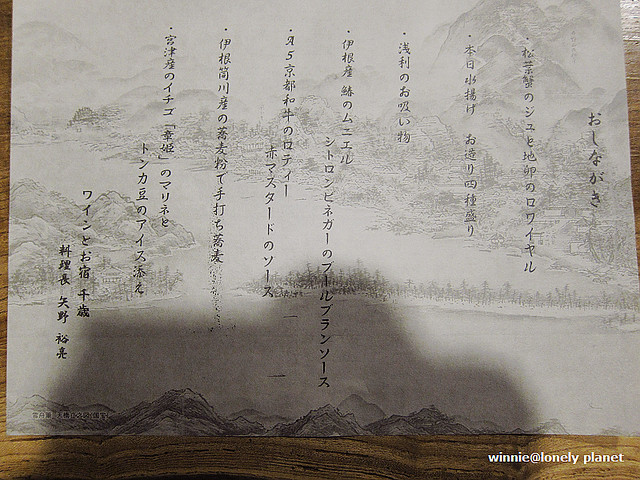 おしながき
・松葉蟹のジュと地卵のロワイヤル
・本日水揚げ お造り四種盛り
・浅利のお吸い物
・伊根産 鰆のムニエル
シトロンビネガーのブールブランソース
・A5京都和牛のロティー
赤マスタードのソース
・伊根筒川産の蕎麦粉で手打ち蕎麦
・宮津産のイチゴ「章姫」のマリネと
トンカ豆のアイス添え
ワインとお宿 千歳
料理長 矢野 裕亮
雪舟筆 天橋立之図(国宝)
winnie@lonely planet